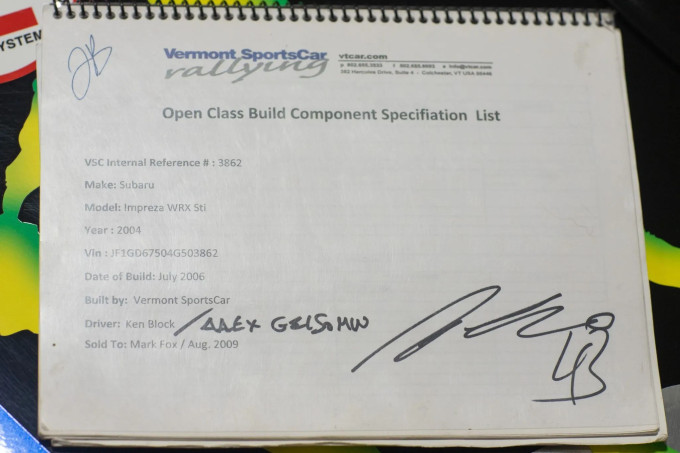 SYSTEM
JB
Vermont SportsCar vtcar.com
rallying
382 Hercules Drive, Suite 4 - Colchester, VT USA 05446
Open Class Build Component Specifiation List
VSC Internal Reference # : 3862
Make: Subaru
Model: Impreza WRX Sti
Year : 2004
Vin : JF1GD67504G503862
Date of Build: July 2006
Built by: Vermont SportsCar
Driver: Ken Block / ALEX GELSOMINO
Sold To: Mark Fox / Aug. 2009
43